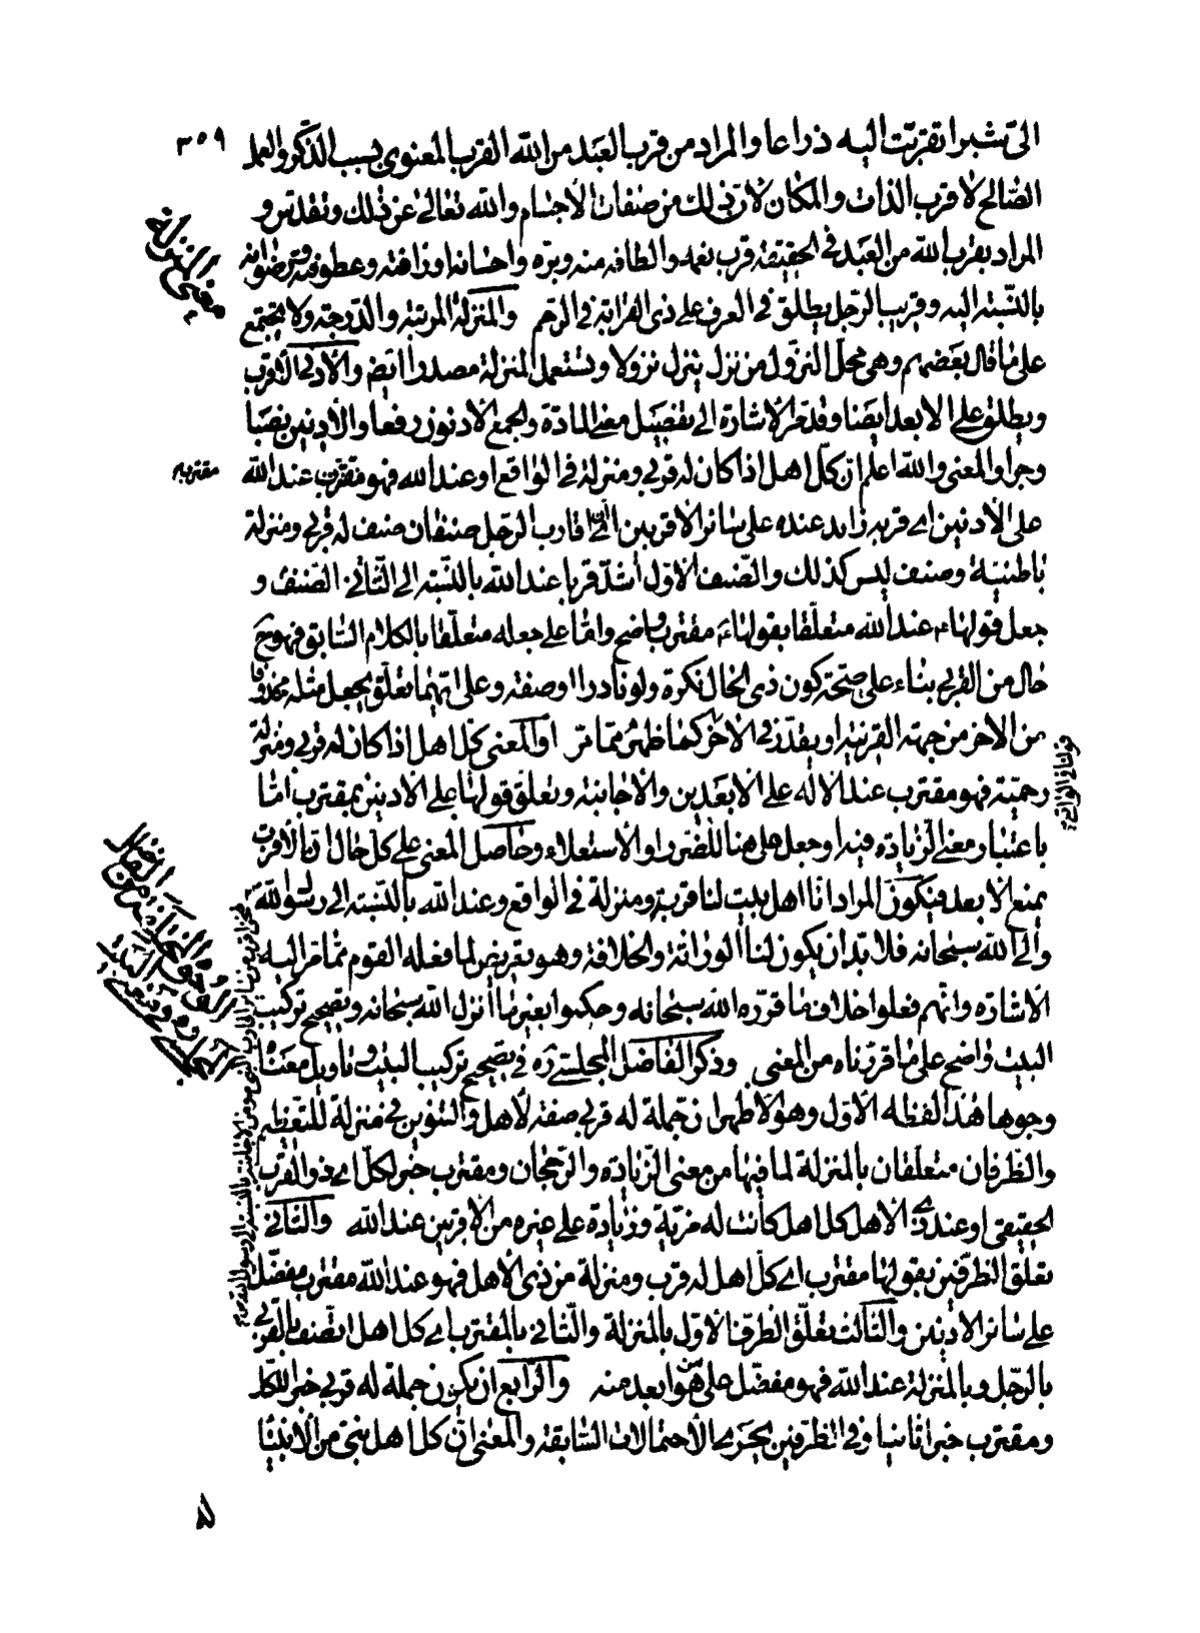 ٣٥٩
الىّ شبرا تقربّت اليه ذراعا والمراد من قرب العَبَد من الله القرب المعنوى بسبب الذّكر والعمل
الصّالح لا قرب الذات والمكان لانّ ذلك من صفات الاجسام والله تعالى عن ذلك وتقدّس و
المراد بقرب الله من العَبَد فى الحقيقة قرب نعمه والطافه منه وبرّه واحسانه اورافته وعطوفته ورضوانه
بالنّسبة اليه وقريب الرّجل يطلق فى العرف على ذى القرابة فى الرّحم والمنزلة المرتبة والدّرجة ولا يجتمع
على ما قال بعضهم وهى محلّ النزول من نزل ينزل نزولا ويستعمل المنزلة مصدرا ايض والأدنى الأقرب
ويطلق على الابعد ايضا وقد مرّ الاشارة الى تفضيل معنى المادّة والجمع الادنون رفعا والأدنين نصبا
وجرا والمعنى والله اعلم ان كلّ اهل اذا كان له قربى ومنزلة فى الواقع او عند الله فهو مقترب عند الله
مقترب
على الأدنين اى قربه زايد عنده على سائر الاقربين اقارب الرّجل صنفان صنف له قربى ومنزلة
باطنيّة وصنف ليس كذلك والصّنف الاوّل أشدّ قربا عند الله بالنّسبة الى الثّانى الصّنف و
جعل قولها عند الله متعلّقا بقولها مقترب واضح وامّا على جعله متعلّقا بالكلام السّابق فهو ح
حال من القربى بناء على صحّة كون ذى الحال نكرة ولو نادرا او صفة وعلى ايّهما تعلّق يجعل مثله محذوفا
من الاخر من جهة القرينة او يقدّر فى الاخر كما ظهر ممّا مرّ او المعنى كلّ اهل اذا كان له قربى ومنزلة
رحميّة فهو مقترب عند الاله على الابعدين والاجانبة وتعلّق قولها على الادنين بمقترب امّا
باعتبار معنى الزّيادة فيه او جعل على هنا للضّرر او الاستعلاء وحاصل المعنى على كلّ حال انّ الأقرب
يمنع الابعد فيكون المراد انّا اهل بيت لنا قربة ومنزلة فى الواقع وعند الله بالنّسبة الى رسول الله
والى الله سبحانه فلابدّ ان يكون لنا الوراثة والخلافة وهو تعريض لما فعله القوم ممّا مرّ اليه
الاشارة وانّهم فعلوا خلاف ما قرّره الله سبحانه وحكموا بغير ما أنزل الله سبحانه وتصحيح تركيب
البيت واضح على ما قرّرناه من المعنى وذكر الفاضل المجلسىّ ره فى تصحيح تركيب البيت وتاويل معناه
وجوها هذا لفظه الاوّل وهو الأظهر ان جملة له قربى صفة لأهل والتنوين فى منزلة للتعظيم
والظّرفان متعلّقان بالمنزلة لما فيها من معنى الزّيادة والرّجحان ومقترب خبر لكلّ اى ذو القرب
الحقيقى او عند ذى الاهل كلّ اهل كانت له مزيّة وزيادة على غيره من الاقربين عند الله والثّانى
تعلّق الظّرفين بقولها مقترب اى كلّ اهل له قرب ومنزلة من ذى الاهل فهو عند الله مقترب مفضّل
على سائر الادنين والثّالث تعلّق الظّرف الاوّل بالمنزلة والثّانى بالمقترب اى كل اهل اتّصف بالقربى
بالرّجل وبالمنزلة عند الله فهو مفضّل على من هو ابعد منه والرّابع ان يكون جملة له قربى خبرا للكلّ
ومقترب خبرا ثانيا وفى الظّرفين يجرى الاحتمالات السّابقة والمعنى انّ كلّ اهل نبىّ من الانبياء